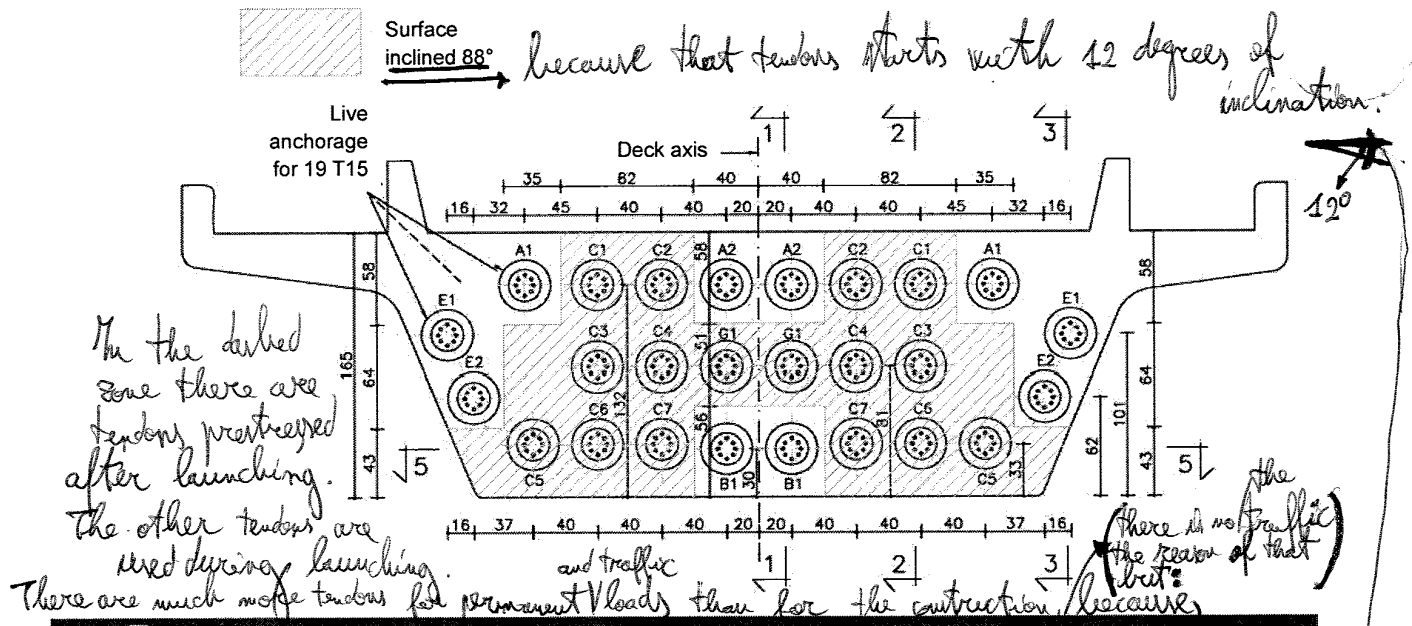 Surface
inclined 88°
because that tendons starts with 12 degrees of
inclination.
12°
Live
anchorage
for 19 T15
Deck axis
1 2 3
35 82 40 40 82 35
16 32 45 40 40 20 20 40 40 45 32 16
A1 C1 C2 A2 A2 C2 C1 A1
58 58 58
E1 E1
C3 C4 G1 G1 C4 C3
51
E2 E2
165 64 132 81 101 64
C6 C7 C7 C6
56 62
43 30 33 43
5 5
C5 B1 B1 C5
16 37 40 40 40 20 20 40 40 40 37 16
1 2 3
In the dashed
zone there are
tendons prestressed
after launching.
The other tendons are
used during launching.
and traffic
There are much more tendons for permanent loads than for the contruction, because
(there is no traffic
the
the reason of that
but:)